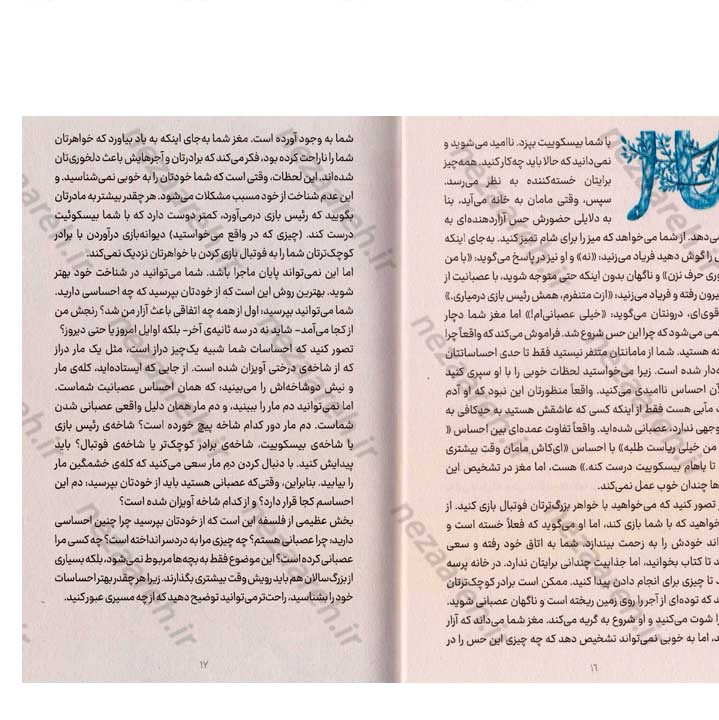 با شما بیسکوییت بپزد. ناامید می‌شوید و
نمی‌دانید که حالا باید چه‌کار کنید. همه‌چیز
برایتان خسته‌کننده به نظر می‌رسد.
سپس، وقتی مامان به خانه می‌آید، بنا
به دلایلی حضورش حس آزاردهنده‌ای به
می‌دهد. از شما می‌خواهد که میز را برای شام تمیز کنید. به‌جای اینکه
را گوش دهید فریاد می‌زنید: «نه» و او نیز در پاسخ می‌گوید: «با من
حرف نزن» و ناگهان بدون اینکه حتی متوجه شوید، با عصبانیت از
رفته و فریاد می‌زنید: «ازت متنفرم، همش رئیس بازی درمیاری.»
درونتان می‌گوید: «خیلی عصبانی‌ام!» اما مغز شما دچار
می‌شود که چرا این حس شروع شد. فراموش می‌کند که واقعاً چرا
هستید. شما از مامانتان متنفر نیستید فقط تا حدی احساساتتان
شده است. زیرا می‌خواستید لحظات خوبی را با او سپری کنید
احساس ناامیدی می‌کنید. واقعاً منظورتان این نبود که او آدم
مآبی هست فقط از اینکه کسی که عاشقش هستید به حدکافی به
ندارد، عصبانی شده‌اید. واقعاً تفاوت عمده‌ای بین احساس «
من خیلی ریاست طلبه» با احساس «ای‌کاش مامان وقت بیشتری
باهام بیسکوییت درست کنه.» هست، اما مغز در تشخیص این
چندان خوب عمل نمی‌کند.
تصور کنید که می‌خواهید با خواهر بزرگ‌ترتان فوتبال بازی کنید. از
که با شما بازی کند، اما او می‌گوید که فعلاً خسته است و
خودش را به زحمت بیندازد. شما به اتاق خود رفته و سعی
تا کتاب بخوانید، اما جذابیت چندانی برایتان ندارد. در خانه پرسه
تا چیزی برای انجام دادن پیدا کنید. ممکن است برادر کوچک‌ترتان
که توده‌ای از آجر را روی زمین ریخته است و ناگهان عصبانی شوید.
را شوت می‌کنید و او شروع به گریه می‌کند. مغز شما می‌داند که آزار
اما به خوبی نمی‌تواند تشخیص دهد که چه چیزی این حس را در
۱۶
شما به وجود آورده است. مغز شما به‌جای اینکه به یاد بیاورد که خواهرتان
شما را ناراحت کرده بود، فکر می‌کند که برادرتان و آجرهایش باعث دلخوری‌تان
شده‌اند. این لحظات، وقتی است که شما خودتان را به خوبی نمی‌شناسید. و
این عدم شناخت از خود مسبب مشکلات می‌شود. هر چقدر بیشتر به مادرتان
بگویید که رئیس بازی درمی‌آورد، کمتر دوست دارد که با شما بیسکوئیت
درست کند. (چیزی که در واقع می‌خواستید) دیوانه‌بازی درآوردن با برادر
کوچک‌ترتان شما را به فوتبال بازی کردن با خواهرتان نزدیک نمی‌کند.
اما این نمی‌تواند پایان ماجرا باشد. شما می‌توانید در شناخت خود بهتر
شوید. بهترین روش این است که از خودتان بپرسید که چه احساسی دارید.
شما می‌توانید بپرسید: اول از همه چه اتفاقی باعث آزار من شد؟ رنجش من
از کجا می‌آمد- شاید نه در سه ثانیه‌ی آخر- بلکه اوایل امروز یا حتی دیروز؟
تصور کنید که احساسات شما شبیه یک‌چیز دراز است، مثل یک مار دراز
که از شاخه‌ی درختی آویزان شده است. از جایی که ایستاده‌اید، کله‌ی مار
و نیش دوشاخه‌اش را می‌بینید: که همان احساس عصبانیت شماست.
اما نمی‌توانید دم مار را ببینید، و دم مار همان دلیل واقعی عصبانی شدن
شماست. دم مار دور کدام شاخه پیچ خورده است؟ شاخه‌ی رئیس بازی
یا شاخه‌ی بیسکوییت، شاخه‌ی برادر کوچک‌تر یا شاخه‌ی فوتبال؟ باید
پیدایش کنید. با دنبال کردن دم مار سعی می‌کنید که کله‌ی خشمگین مار
را بیابید. بنابراین، وقتی‌که عصبانی هستید باید از خودتان بپرسید: دم این
احساسم کجا قرار دارد؟ و از کدام شاخه آویزان شده است؟
بخش عظیمی از فلسفه این است که از خودتان بپرسید چرا چنین احساسی
دارید: چرا عصبانی هستم؟ چه چیزی مرا به دردسر انداخته است؟ چه کسی مرا
عصبانی کرده است؟ این موضوع فقط به بچه‌ها مربوط نمی‌شود، بلکه بسیاری
از بزرگ‌سالان هم باید رویش وقت بیشتری بگذارند، زیرا هر چقدر بهتر احساسات
خود را بشناسید، راحت‌تر می‌توانید توضیح دهید که از چه مسیری عبور کنید.
۱۷
nezareh.ir